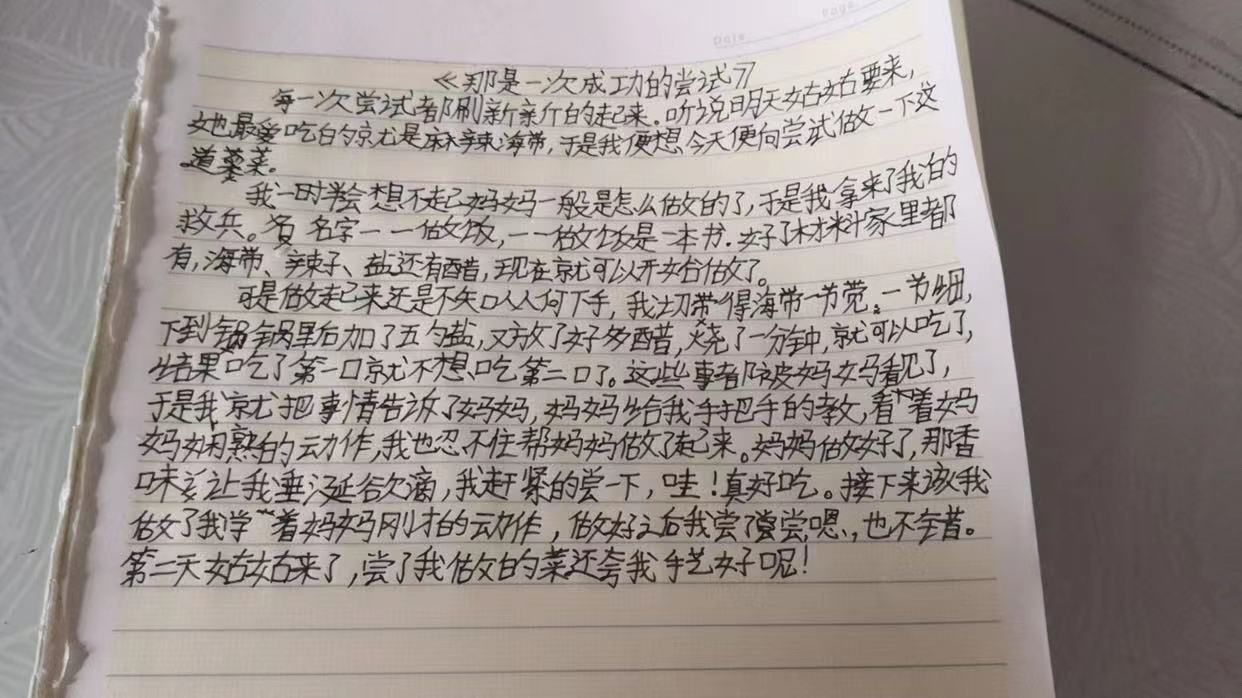 Page.
Date
《那是一次成功的尝试》
每一次尝试都刷新新的起来。听说明天姑姑要来，
她最爱吃的就是麻辣海带，于是我便想今天便向尝试做一下这
道菜。
我一时半会想不起妈妈一般是怎么做的了，于是我拿来了我的
救兵。名字一一做饭，一一做饭是一本书.好了材料家里都
有，海带、辣子、盐还有醋，现在就可以开始做了。
可是做起来还是不知从何下手，我切得海带一节宽。一节细，
下到锅里后加了五勺盐，又放了好多醋，烧了一分钟，就可以吃了，
结果吃了第一口就不想吃第二口了。这些事都被妈妈看见了，
于是我就把事情告诉了妈妈，妈妈给我手把手的教，看着妈
妈娴熟的动作，我也忍不住帮妈妈做了起来。妈妈做好了，那香
味让我垂涎欲滴，我赶紧的尝一下，哇！真好吃。接下来该我
做了我学着妈妈刚才的动作，做好之后我尝了尝嗯、也不错。
第二天姑姑来了，尝了我做的菜还夸我手艺好呢！